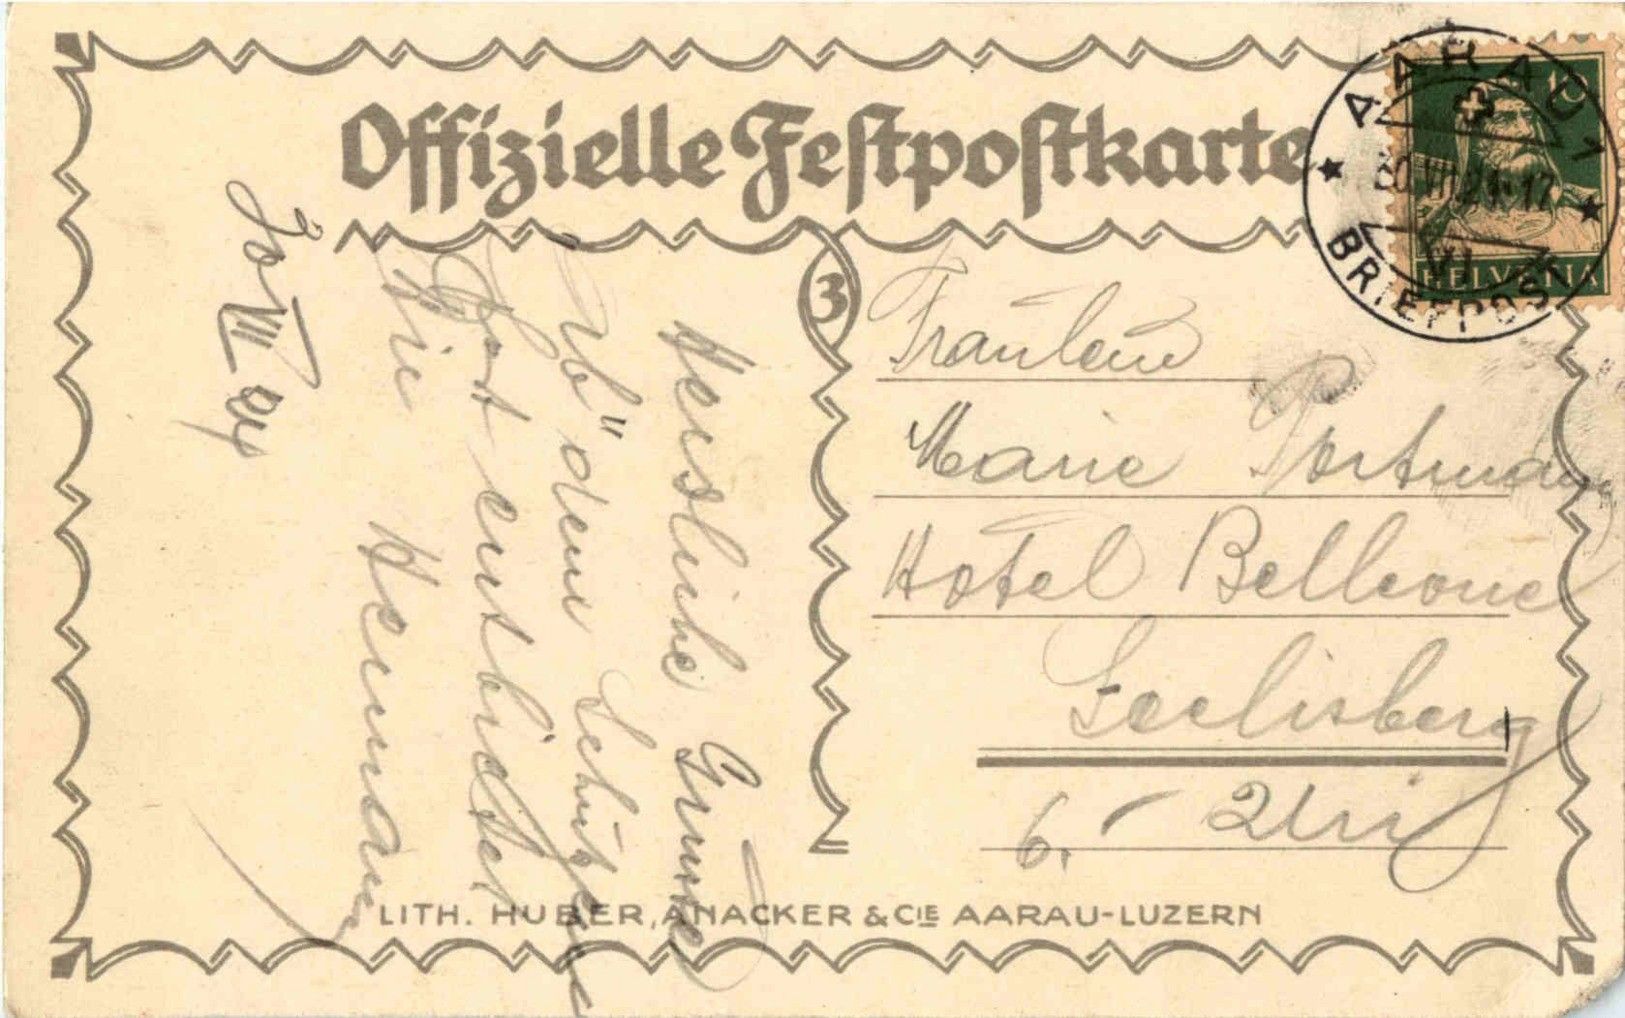 Offizielle Festpostkarte
AARAU 1
30.VII.24.17
VI
BRIEFPOST
10
HELVETIA
3
Fräulein
Marie Portmann
Hotel Bellevue
Seelisberg
Uri
6.
Herzliche Grüsse
dem Schützen
Fest entbietet
Hermann
30 VII 24
LITH. HUBER, ANACKER & CIE AARAU-LUZERN